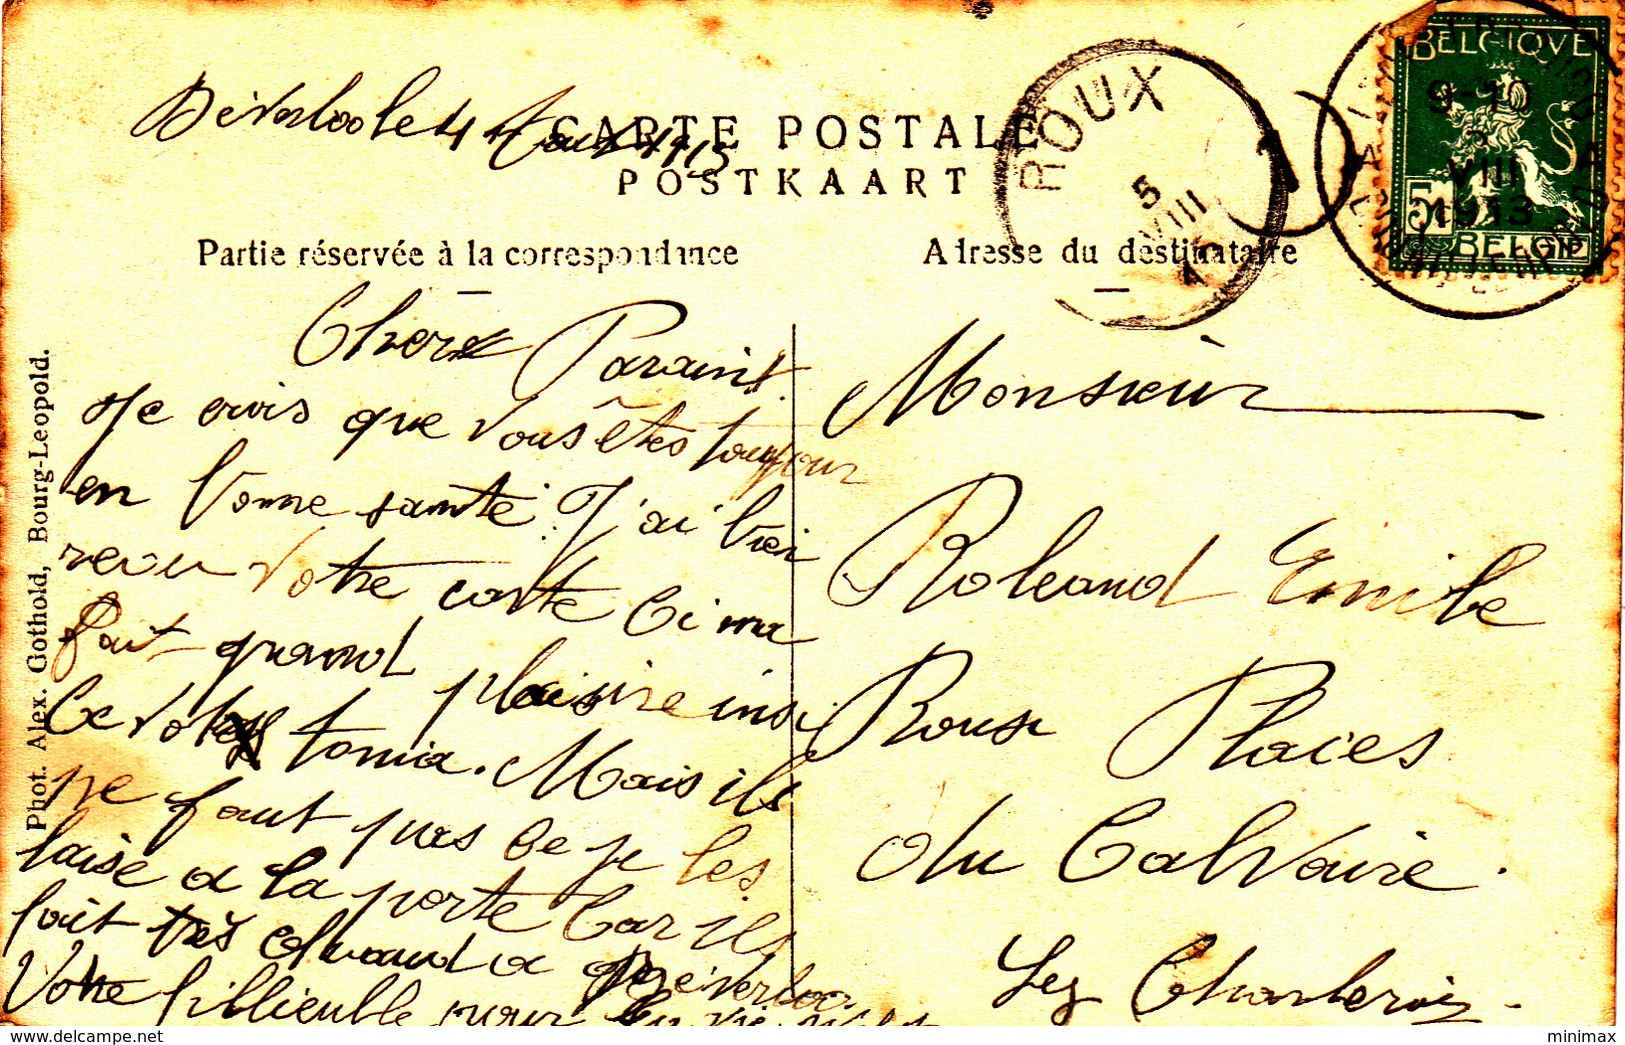 Béverloo le 4 Août 1913
CARTE POSTALE
POSTKAART
Partie réservée à la correspondance
Adresse du destinataire
ROUX
5
VIII
BELGIQUE
9-10
VIII
1913
5
BELGIË
Phot. Alex. Gothold, Bourg-Leopold.
Cher Paraint.
Je crois que vous êtes toujour
en bonne santé. J'ai bien
recu votre carte Ci ma
fait grand plaisire insi
Ce votes tomia. Mais ils
ne faut pas Ce je les
laise a la porte Car ils
fait très chaud a Béverloo.
Votre fillieul pour la vie
Monsieur
Roleand Emile
Roux Places
du Calvaire.
Lez Charleroix.
delcampe.net
minimax